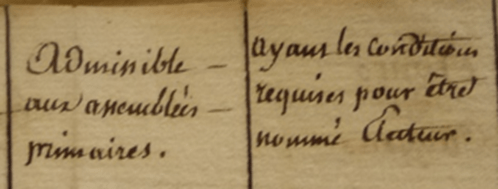 Admissible
aux assemblées
primaires.
ayant les Conditions
requises pour être
nommé Electeur.